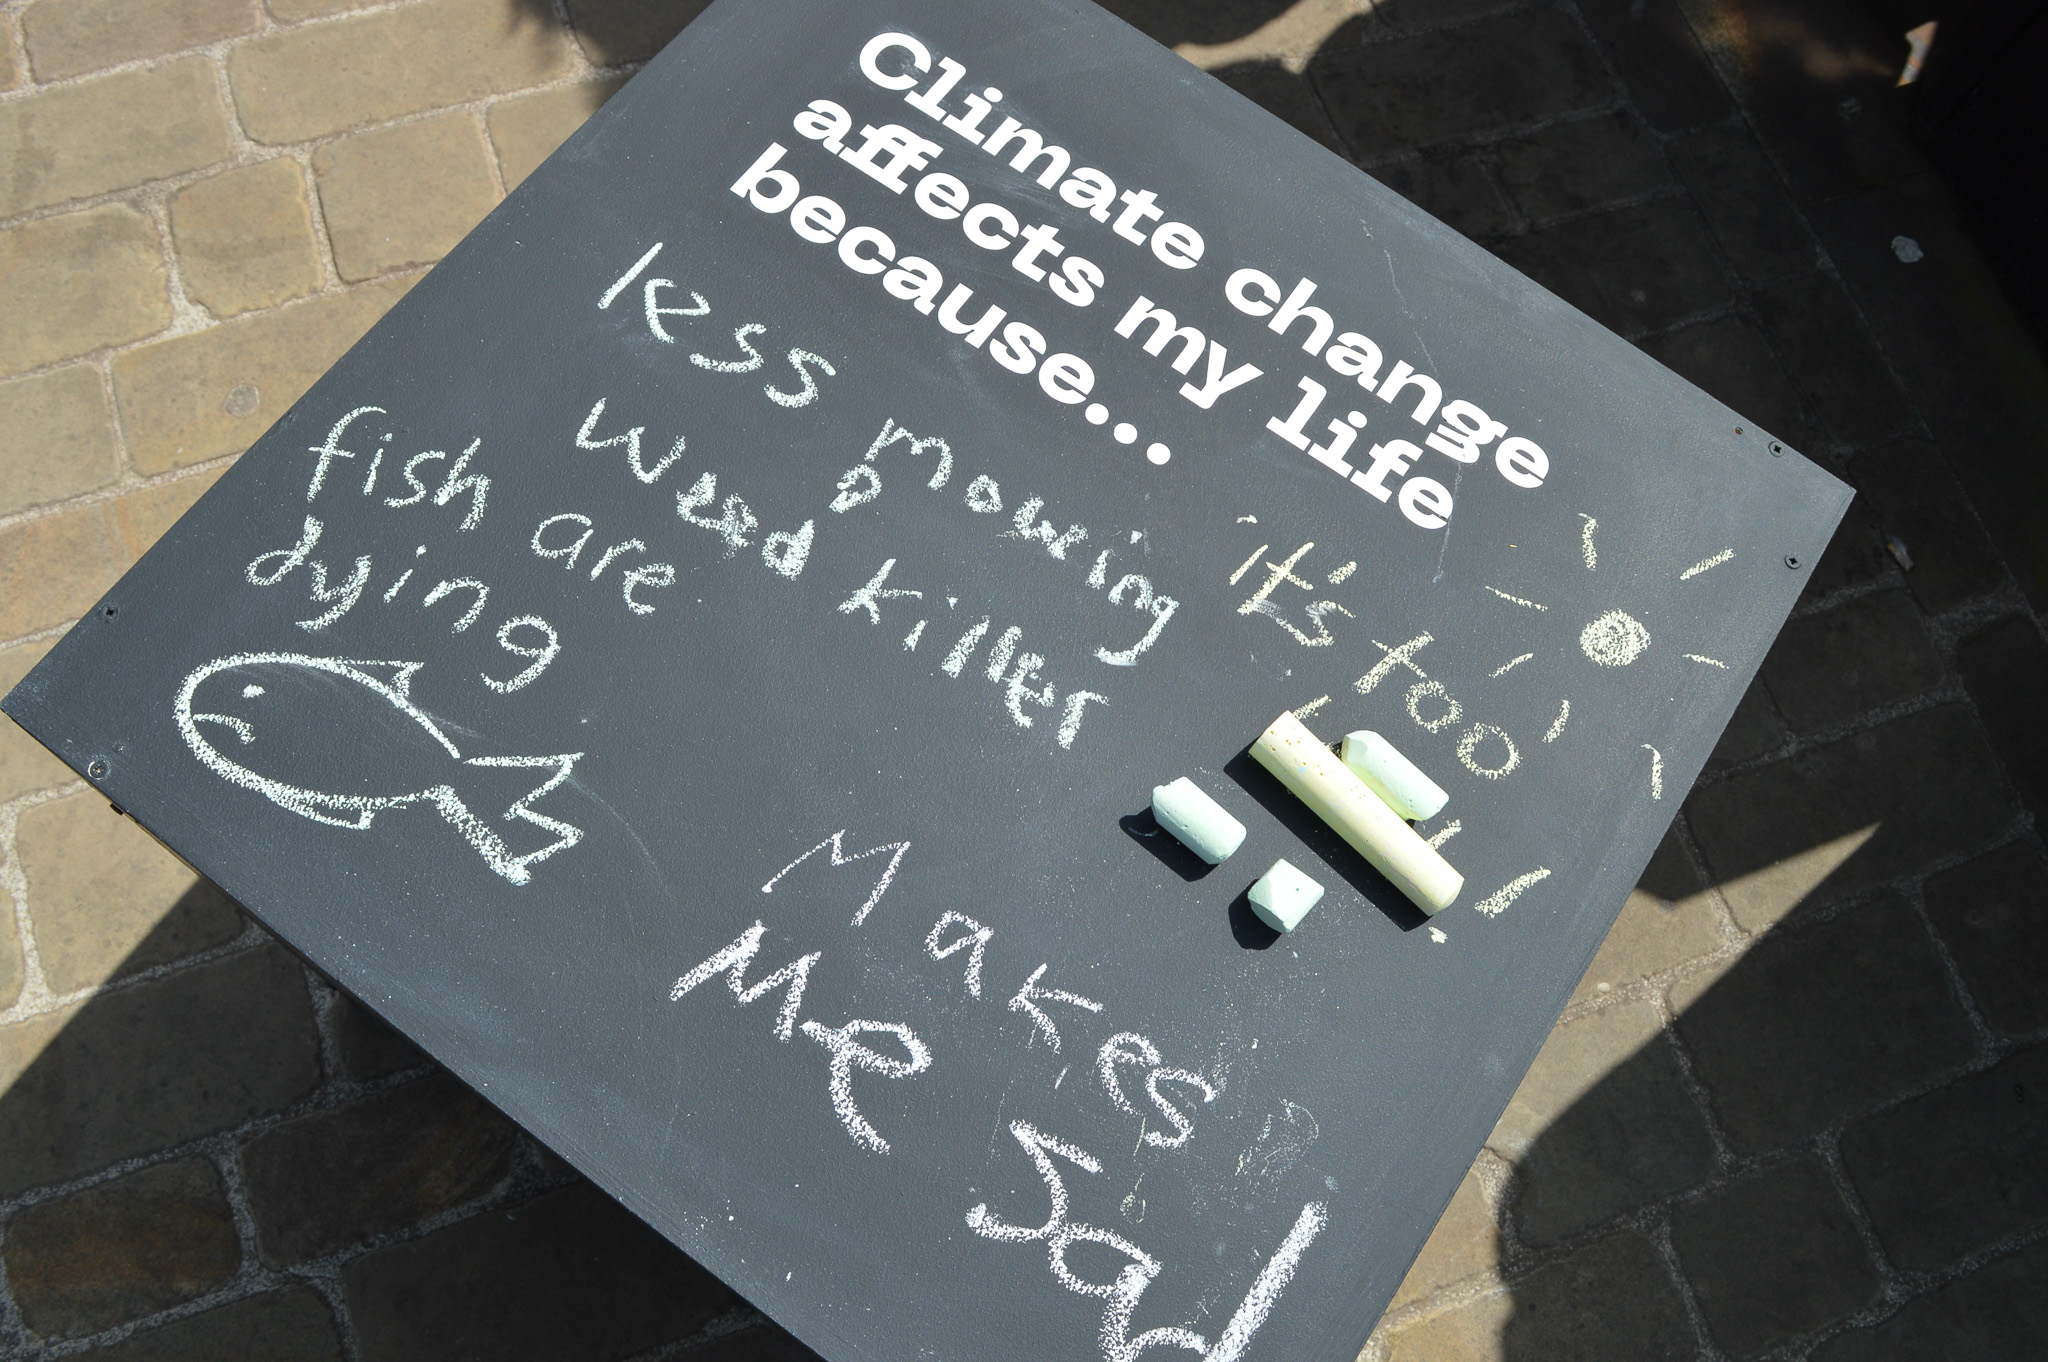 Climate change
affects my life
because...
less mowing
weed killer
fish are
dying
it's too
!
Makes
Me
Sad